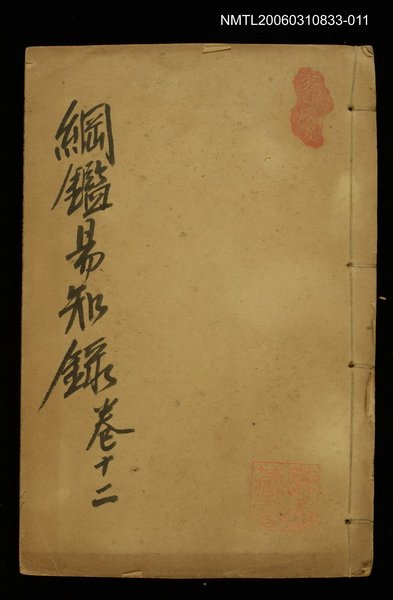 NMTL20060310833-011
綱鑑易知錄卷十二